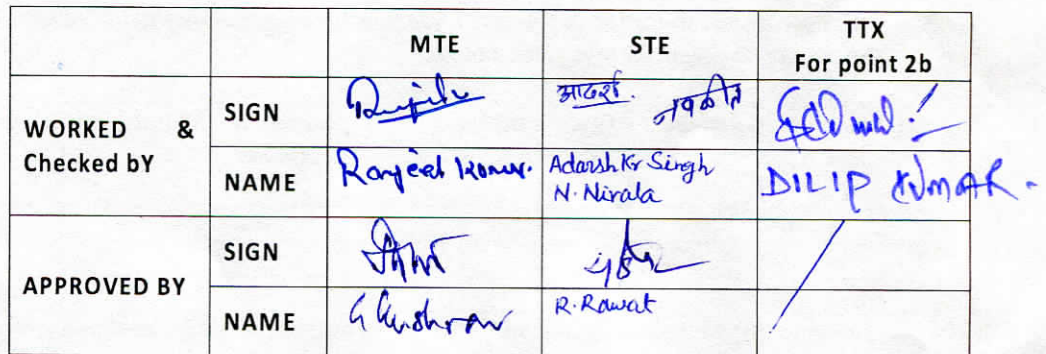 MTE STE TTX
For point 2b
WORKED & Checked bY SIGN आदर्श.
NAME Ranjeet Kumar. Adarsh Kr Singh
N. Nirala
DILIP KUMAR.
APPROVED BY SIGN
NAME R. Rawat